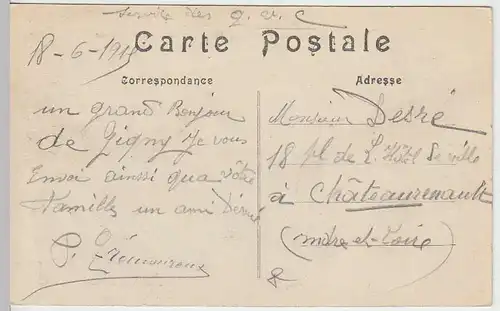 service des g. v. c
18-6-191
Carte Postale
Correspondance
Adresse
un grand Bonjour
de Gigny Je vous
Envoi ainsi qua votre
Famille un ami Dévoué
P.
Monsieur Desré
18 pl de L'Hôtel de ville
à Châteaurenault
(indre-et-Loire)